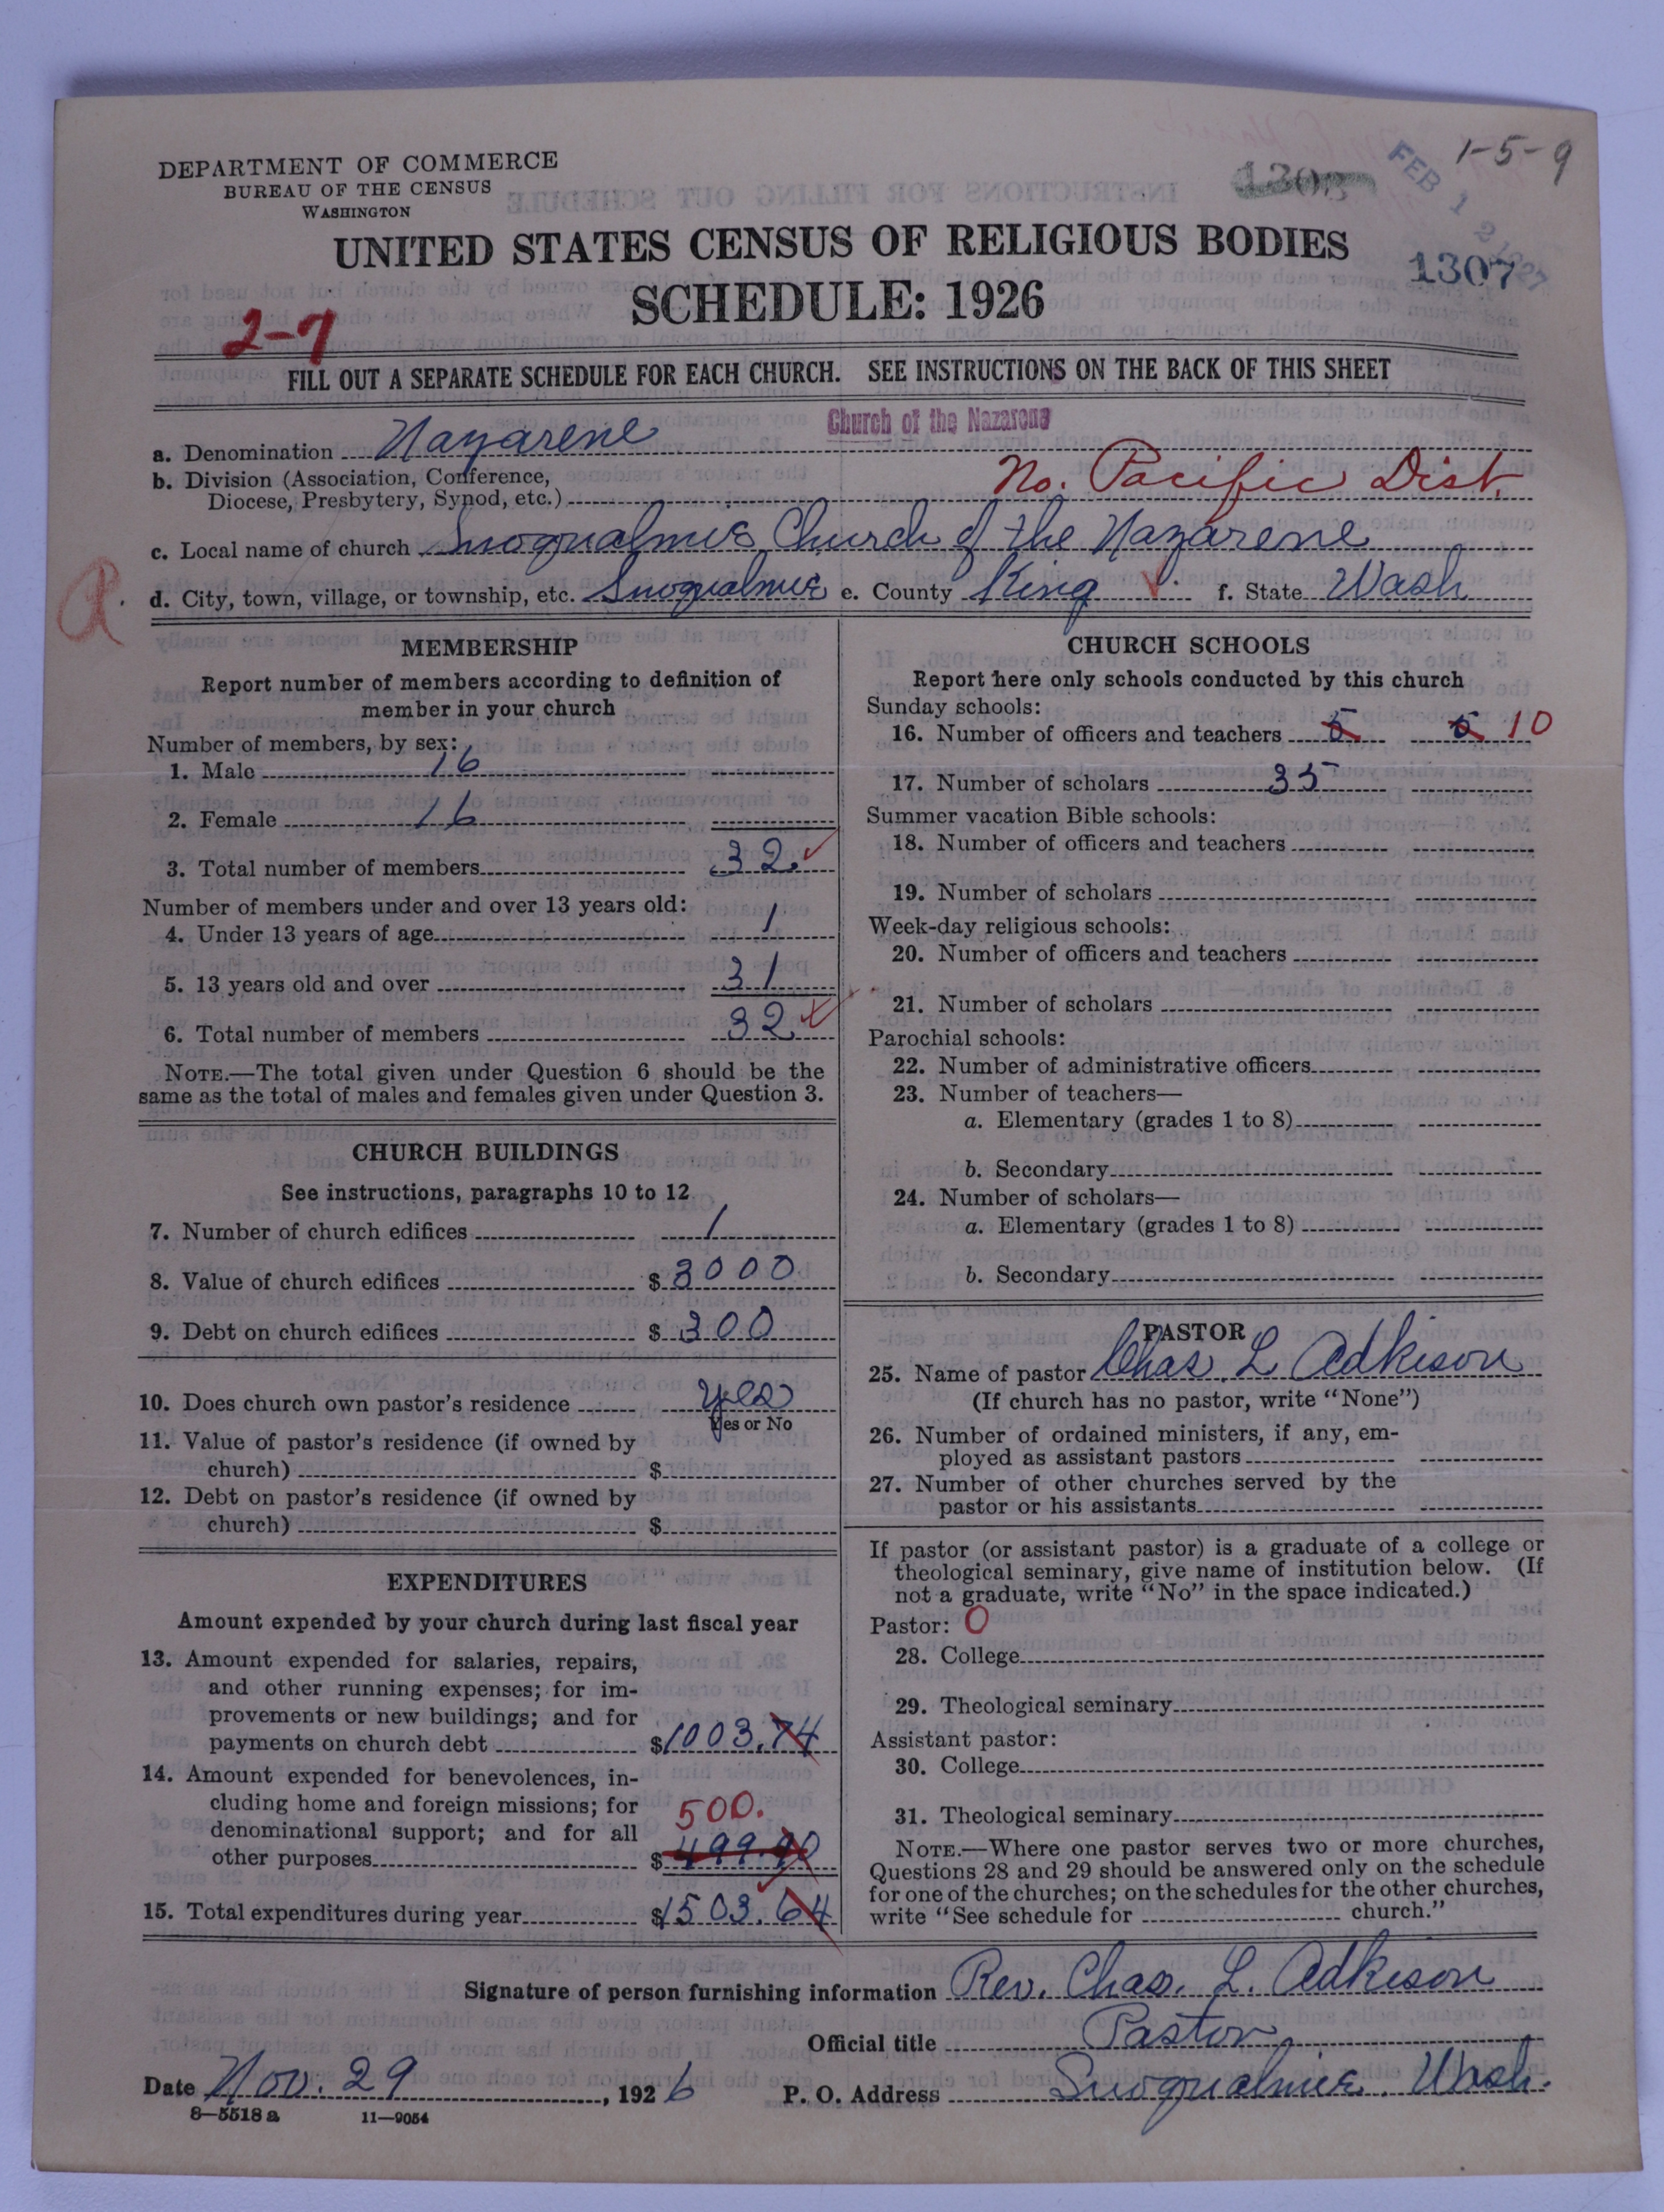 1-5-9
DEPARTMENT OF COMMERCE
BUREAU OF THE CENSUS
WASHINGTON
1308
FEB 12 1927
UNITED STATES CENSUS OF RELIGIOUS BODIES
1307
SCHEDULE: 1926
2-7
FILL OUT A SEPARATE SCHEDULE FOR EACH CHURCH. SEE INSTRUCTIONS ON THE BACK OF THIS SHEET
Church of the Nazarene
a. Denomination Nazarene
b. Division (Association, Conference,
Diocese, Presbytery, Synod, etc.) No. Pacific Dist.
c. Local name of church Snoqualmie Church of the Nazarene
a.
d. City, town, village, or township, etc. Snoqualmie e. County King ✓ f. State Wash
MEMBERSHIP
Report number of members according to definition of
member in your church
Number of members, by sex:
1. Male 16
2. Female 16
3. Total number of members 32 ✓
Number of members under and over 13 years old:
4. Under 13 years of age 1
5. 13 years old and over 31
6. Total number of members 32 ✓
NOTE.—The total given under Question 6 should be the
same as the total of males and females given under Question 3.
CHURCH BUILDINGS
See instructions, paragraphs 10 to 12
7. Number of church edifices 1
8. Value of church edifices $ 3000
9. Debt on church edifices $ 300
10. Does church own pastor's residence yes
Yes or No
11. Value of pastor's residence (if owned by
church) $
12. Debt on pastor's residence (if owned by
church) $
EXPENDITURES
Amount expended by your church during last fiscal year
13. Amount expended for salaries, repairs,
and other running expenses; for im-
provements or new buildings; and for
payments on church debt $1003.74
14. Amount expended for benevolences, in-
cluding home and foreign missions; for
500.
denominational support; and for all
other purposes $ 499.90
15. Total expenditures during year $1503.64
CHURCH SCHOOLS
Report here only schools conducted by this church
Sunday schools:
16. Number of officers and teachers 5 5 10
17. Number of scholars 35
Summer vacation Bible schools:
18. Number of officers and teachers
19. Number of scholars
Week-day religious schools:
20. Number of officers and teachers
21. Number of scholars
Parochial schools:
22. Number of administrative officers
23. Number of teachers—
a. Elementary (grades 1 to 8)
b. Secondary
24. Number of scholars—
a. Elementary (grades 1 to 8)
b. Secondary
PASTOR
25. Name of pastor Chas. L Adkison
(If church has no pastor, write "None")
26. Number of ordained ministers, if any, em-
ployed as assistant pastors
27. Number of other churches served by the
pastor or his assistants
If pastor (or assistant pastor) is a graduate of a college or
theological seminary, give name of institution below. (If
not a graduate, write "No" in the space indicated.)
Pastor: O
28. College
29. Theological seminary
Assistant pastor:
30. College
31. Theological seminary
NOTE.—Where one pastor serves two or more churches,
Questions 28 and 29 should be answered only on the schedule
for one of the churches; on the schedules for the other churches,
write "See schedule for church."
Signature of person furnishing information Rev. Chas. L. Adkison
Official title Pastor
Date Nov. 29, 1926 P. O. Address Snoqualmie. Wash.
8—5518a 11—9054